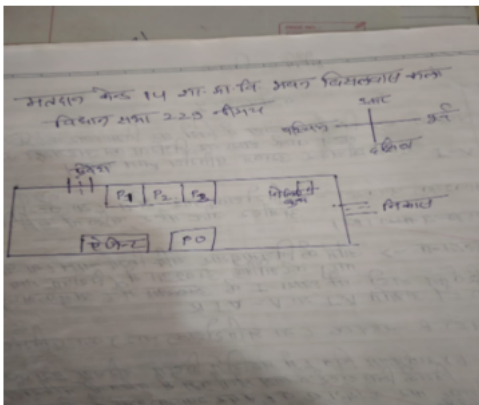 मतदान केन्द्र 14 शा. मा. वि भवन बिसलवास कला
विधान सभा 229 नीमच
उत्तर
पश्चिम पूर्व
दक्षिण
प्रवेश
P1 P2 P3
निकास
एजेन्ट PO